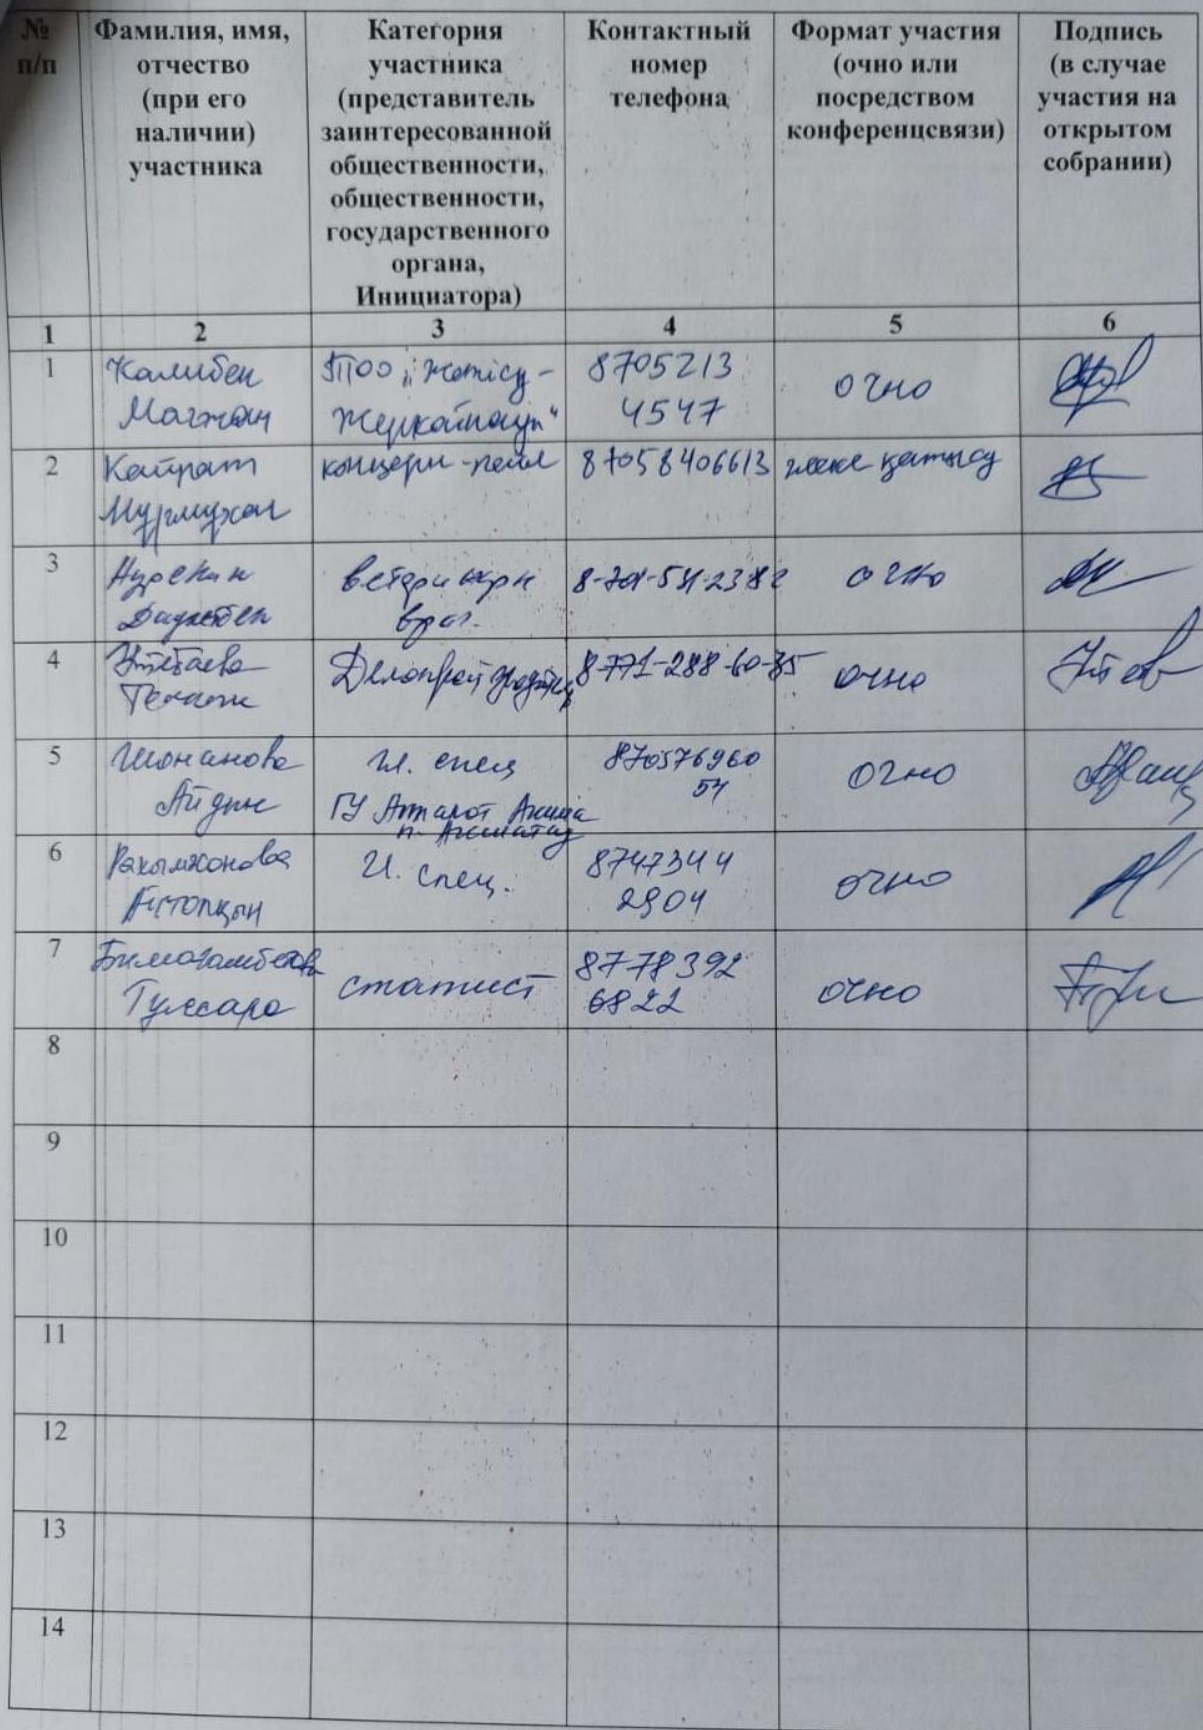 №
п/п
Фамилия, имя,
отчество
(при его
наличии)
участника
Категория
участника
(представитель
заинтересованной
общественности,
общественности,
государственного
органа,
Инициатора)
Контактный
номер
телефона
Формат участия
(очно или
посредством
конференцсвязи)
Подпись
(в случае
участия на
открытом
собрании)
1 2 3 4 5 6
1
Калибек
Магжан
ТОО "Жетісу-
Жеркойнауы"
8705213
4547
очно
2
Кайрат
Нурмухан
концерн-пейл
87058406613
жеке қатысу
3
Даулетбек
ветеринарн
врач.
очно
4
Утебаева
Делопроизводитель
8-771-288-60-35
очно
5
Шонанова
Айдын
гл. спец
ГУ Аппарат Акима
п.
870576960
54
очно
6
Рахымжонова
Айтолқын
гл. спец.
8747344
2904
очно
7
Бимагамбетова
Гулсара
статист
8778392
6822
очно
8
9
10
11
12
13
14